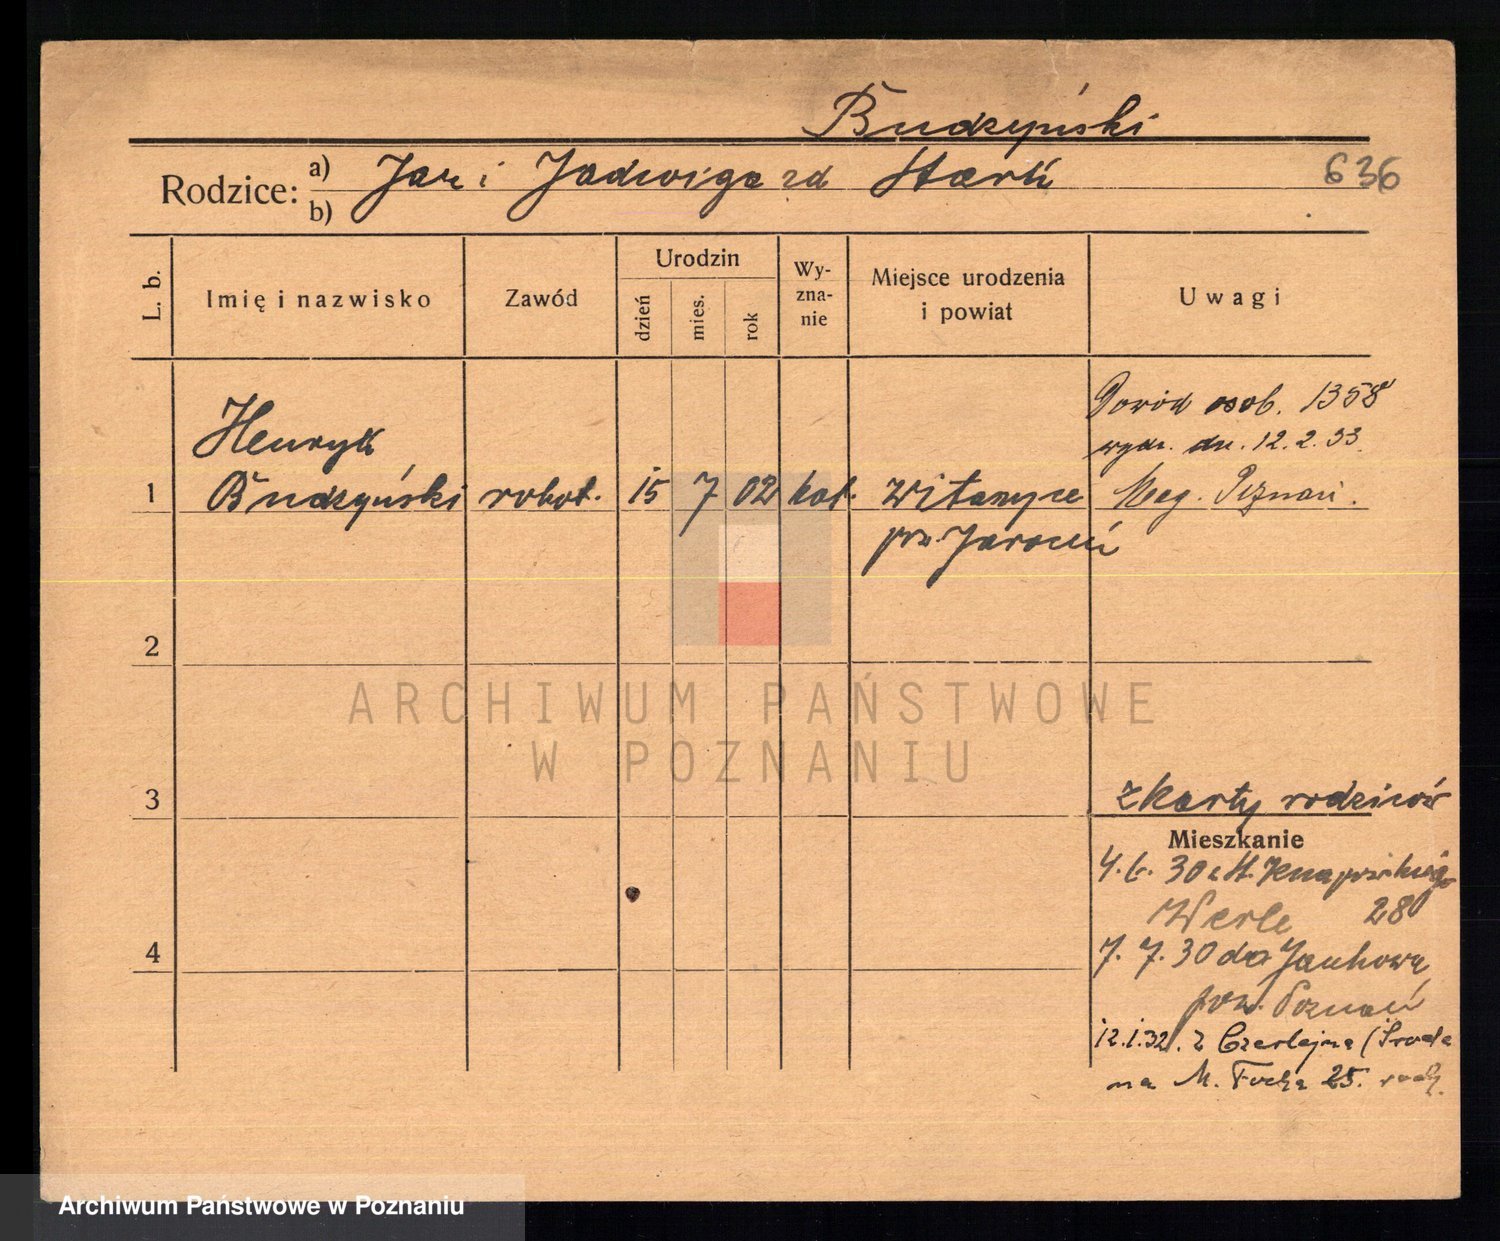 Budzyński
Rodzice: a) Jan i Jadwiga zd Stark
b)
636
L. b.
Imię i nazwisko
Zawód
Urodzin
dzień
mies.
rok
Wy-
zna-
nie
Miejsce urodzenia
i powiat
Uwagi
Henryk
1 Budzyński robot. 15 7 02 kat. Witaszyce
pow. Jarocin
Dowód osob. 1358
wyd. dn. 12.2.33.
Mag. Poznań.
2
3
z karty rodziców
Mieszkanie
4. 30
28
4
7. 7. 30 do
pow. Poznań
12.1.32. z Czerlejna (Środa
na M. Focha 25. rodz.
ARCHIWUM PAŃSTWOWE
W POZNANIU
Archiwum Państwowe w Poznaniu